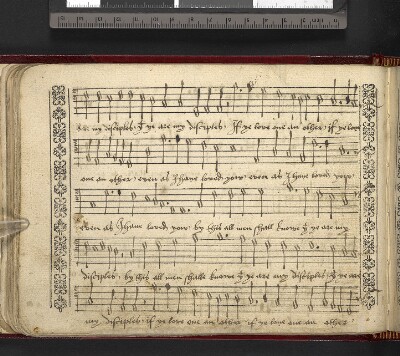 my disciples: yt ye are my disciples: If ye love one an other: if ye love
one an other: even as I have loved you: even as I have loved you:
even as I have loved you: by this all men shall knowe yt ye are my
disciples: by this all men shall knowe yt ye are my disciples: yt ye are
my disciples: if ye love one an other if ye love one an other